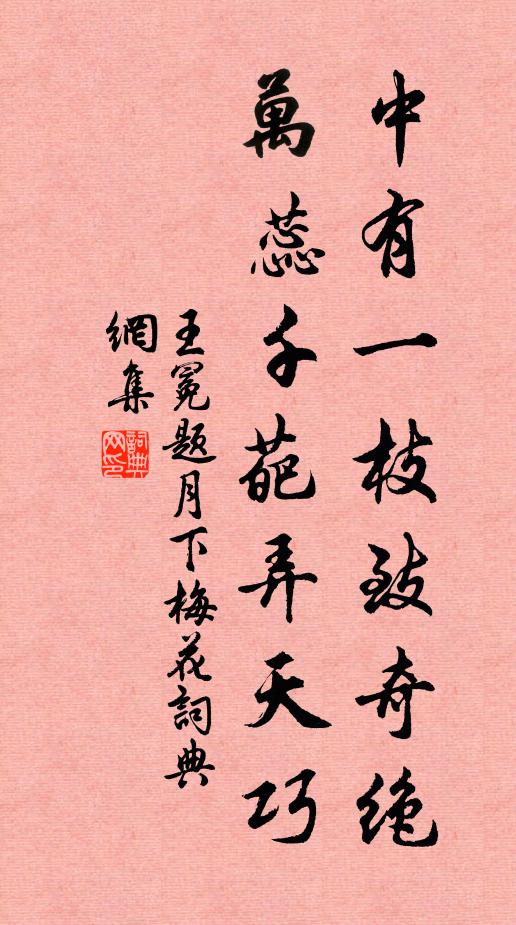 中有一枝致奇絶
萬蕊千葩弄天巧
王冕题月下梅花詞典
網集
詞典網印